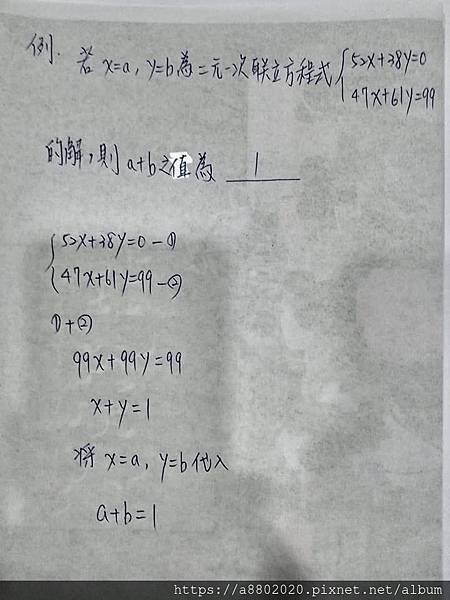 例. 若 x=a, y=b 為二元一次聯立方程式 { 52x+38y=0
47x+61y=99
的解,則 a+b之值為 1
{ 52x+38y=0 - ①
47x+61y=99 - ②
①+②
99x+99y=99
x+y=1
將 x=a, y=b 代入
a+b=1
https://a8802020.pixnet.net/album